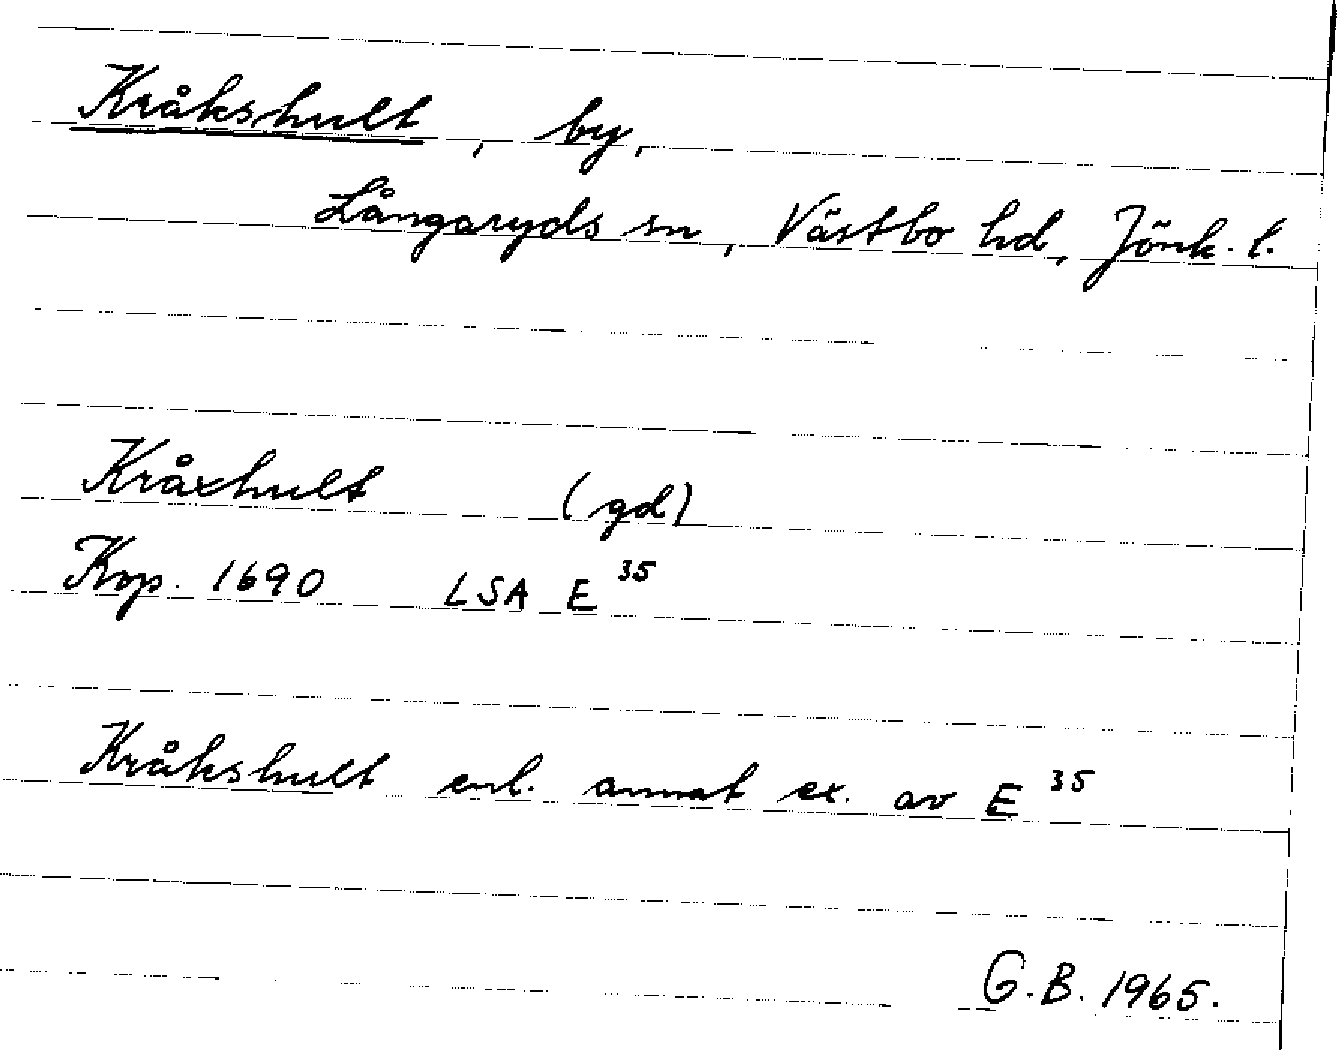 Kråkshult, by,
Långaryds sn, Västbo hd, Jönk. l.
Kråxhult (gd)
Kop. 1690 LSA E 35
Kråkshult enl. annat ex. av E 35
G.B. 1965.